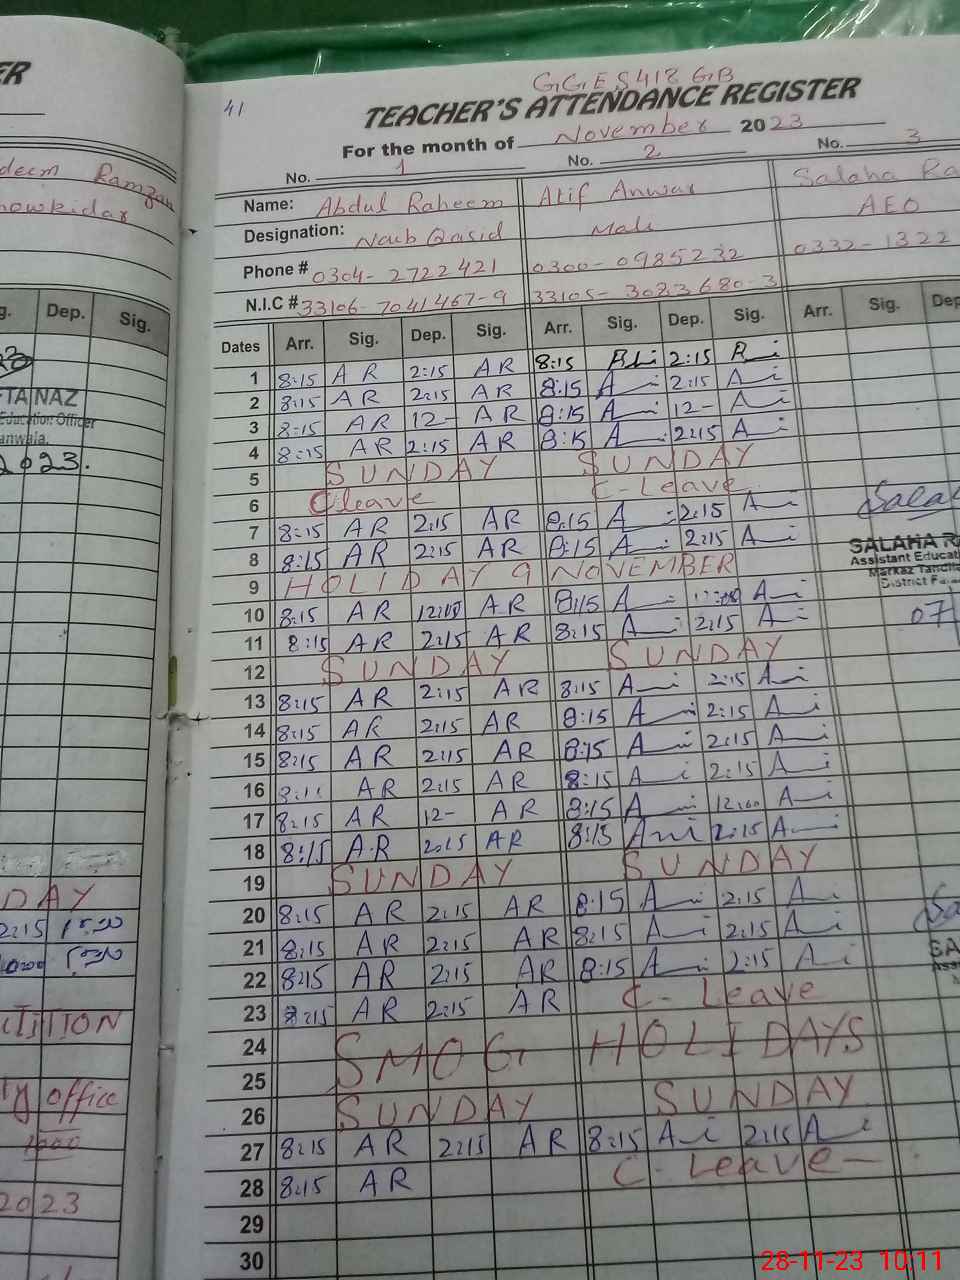 41
G.G.E.S 418 G.B
TEACHER'S ATTENDANCE REGISTER
For the month of November 2023
No. 1 No. 2 No. 3
Name: Abdul Raheem Atif Anwar Salaha Ra
Designation: Naib Qasid Mali AEO
Phone # 0304-2722421 0300-0985232 0332-1322
N.I.C # 33106-7041467-9 33105-3083680-3
Dates Arr. Sig. Dep. Sig. Arr. Sig. Dep. Sig. Arr. Sig. Dep
1 8:15 AR 2:15 AR 8:15 2:15
2 8:15 AR 2:15 AR 8:15 A 2:15 A
3 8:15 AR 12- AR 8:15 A 12- A
4 8:15 AR 2:15 AR 8:15 A 2:15 A
5 SUNDAY SUNDAY
6 C leave C-Leave
7 8:15 AR 2:15 AR 8:15 A 2:15 A
8 8:15 AR 2:15 AR 8:15 A 2:15 A
9 HOLIDAY 9 NOVEMBER
10 8:15 AR AR 8:15 A A
11 8:15 AR 2:15 AR 8:15 A 2:15 A
12 SUNDAY SUNDAY
13 8:15 AR 2:15 AR 8:15 A 2:15 A
14 8:15 AR 2:15 AR 8:15 A 2:15 A
15 8:15 AR 2:15 AR 8:15 A 2:15 A
16 AR 2:15 AR 8:15 A 2:15 A
17 8:15 AR 12- AR 8:15 A 12:00 A
18 8:15 A.R 2:15 AR 8:15 2:15 A
19 SUNDAY SUNDAY
20 8:15 AR 2:15 AR 8:15 A 2:15 A
21 8:15 AR 2:15 AR 8:15 A 2:15 A
22 8:15 AR 2:15 AR 8:15 A 2:15 A
23 8:15 AR 2:15 AR C-Leave
24
SMOG HOLIDAYS
25
26 SUNDAY SUNDAY
27 8:15 AR 2:15 AR 8:15 A 2:15 A
28 8:15 AR C-Leave-
29
30
SALAHA RA
Assistant Educati
Markaz Tandlia
District Fai
07
SA
Assi
ER
deem Ramzan
howkidar
g. Dep. Sig.
TA NAZ
Education Officer
anwala.
2023.
DAY
2:15
ITION
office
2023
28-11-23 10:11